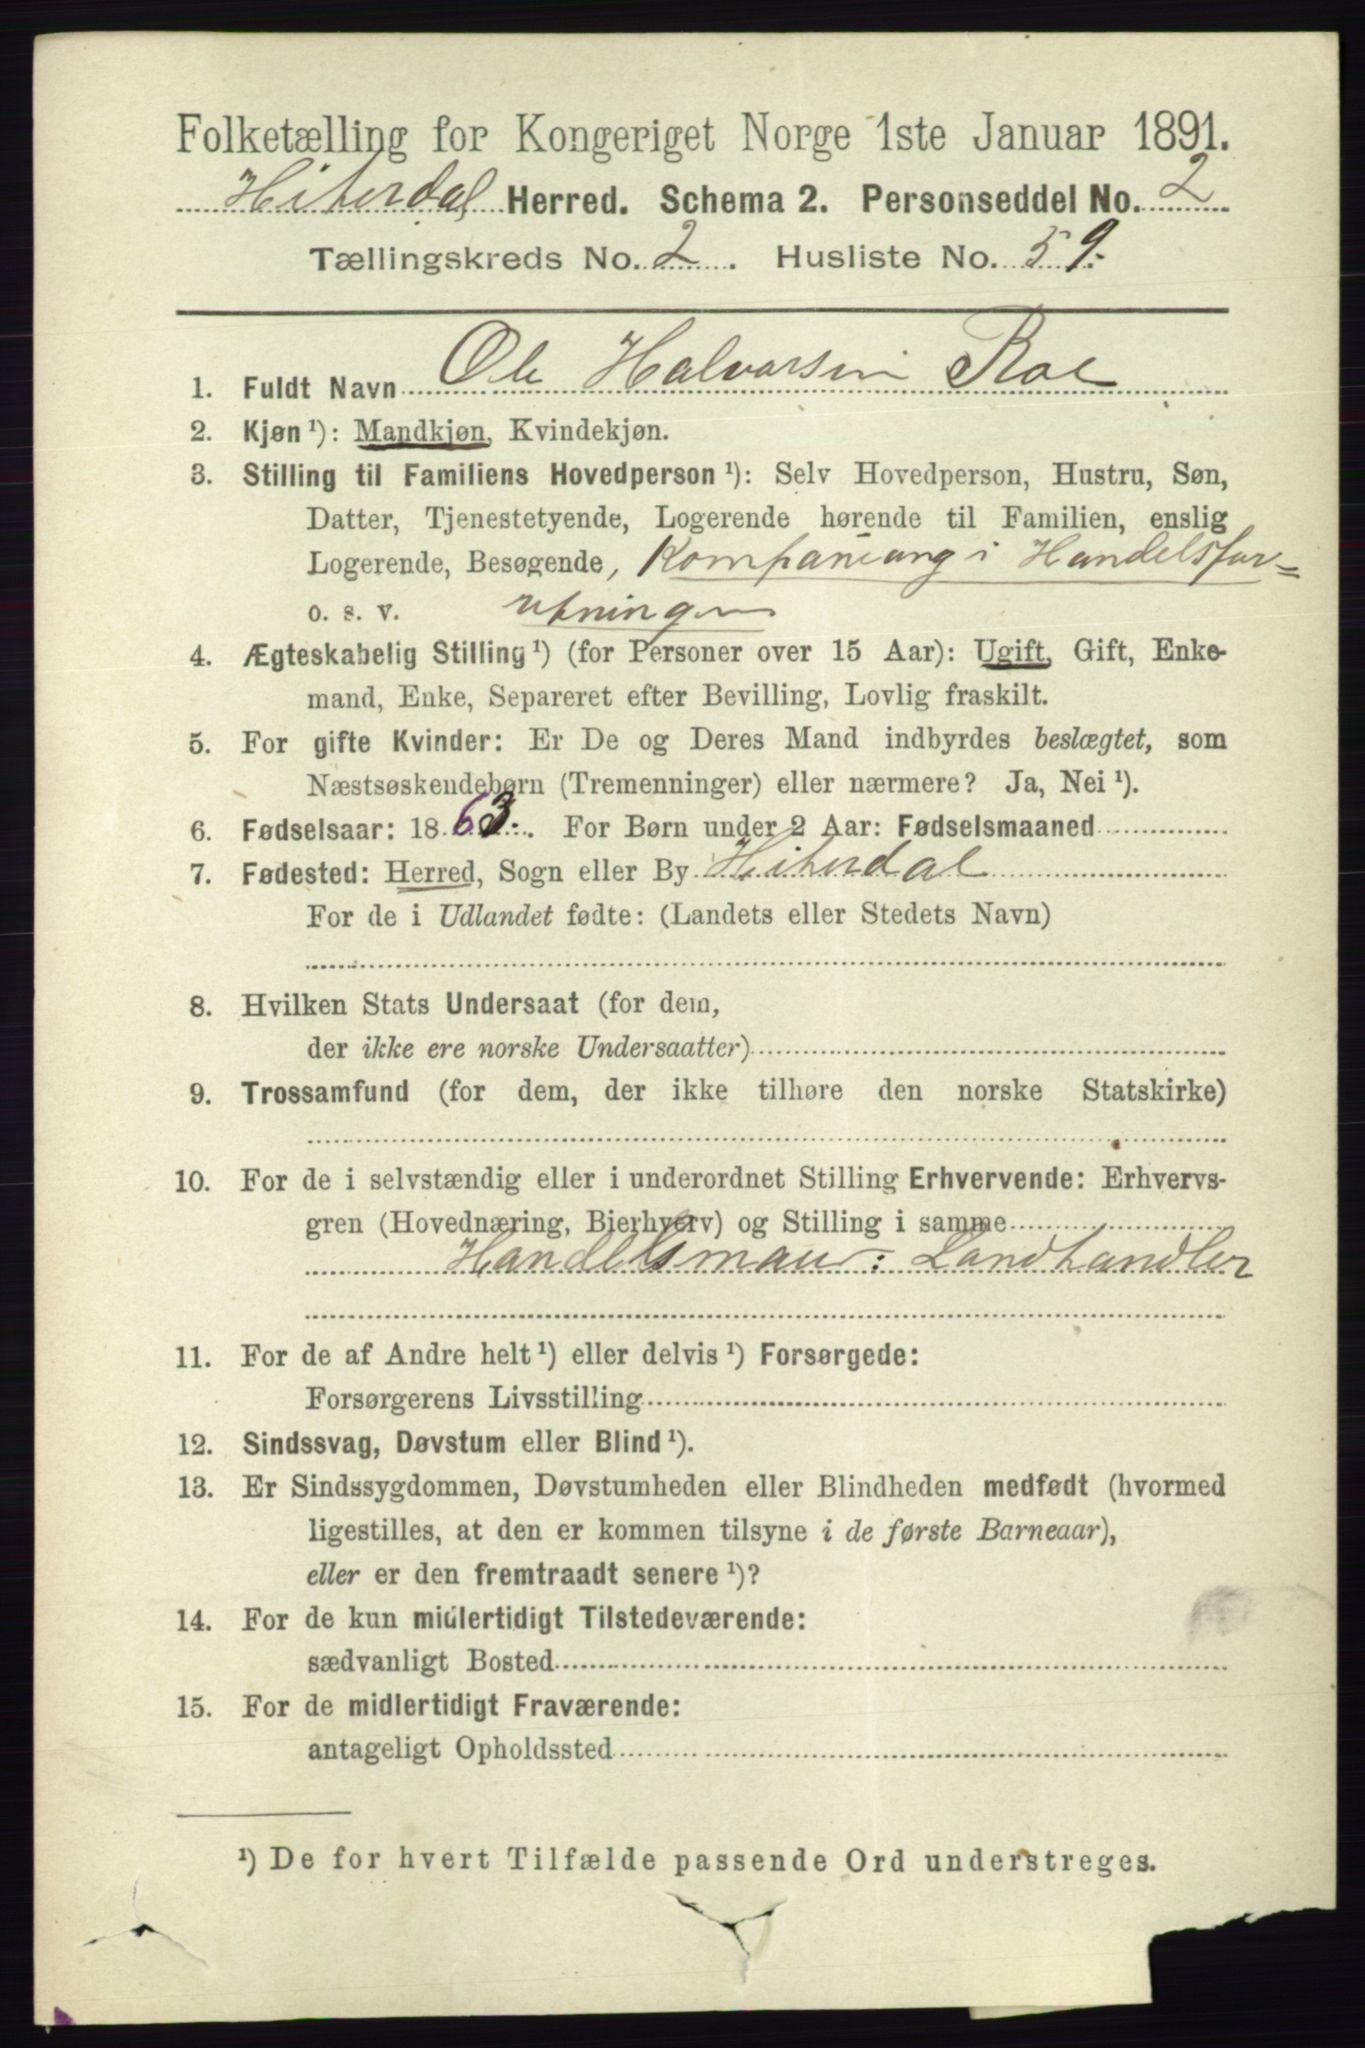 Folketælling for Kongeriget Norge 1ste Januar 1891.
Hiterdal Herred. Schema 2. Personseddel No. 2
Tællingskreds No. 2. Husliste No. 59.
1. Fuldt Navn Ole Halvorsen Roe
2. Kjøn ¹): Mandkjøn, Kvindekjøn.
3. Stilling til Familiens Hovedperson ¹): Selv Hovedperson, Hustru, Søn,
Datter, Tjenestetyende, Logerende hørende til Familien, enslig
Logerende, Besøgende, Kompaneang i Handelsfor=
o. s. v. retningen
4. Ægteskabelig Stilling ¹) (for Personer over 15 Aar): Ugift, Gift, Enke-
mand, Enke, Separeret efter Bevilling, Lovlig fraskilt.
5. For gifte Kvinder: Er De og Deres Mand indbyrdes beslægtet, som
Næstsøskendebørn (Tremenninger) eller nærmere? Ja, Nei ¹).
6. Fødselsaar: 1863. For Børn under 2 Aar: Fødselsmaaned
7. Fødested: Herred, Sogn eller By Hiterdal
For de i Udlandet fødte: (Landets eller Stedets Navn)
8. Hvilken Stats Undersaat (for dem,
der ikke ere norske Undersaatter)
9. Trossamfund (for dem, der ikke tilhøre den norske Statskirke)
10. For de i selvstændig eller i underordnet Stilling Erhvervende: Erhvervs-
gren (Hovednæring, Bierhverv) og Stilling i samme
Handelsmand: Landhandler
11. For de af Andre helt ¹) eller delvis ¹) Forsørgede:
Forsørgerens Livsstilling
12. Sindssvag, Døvstum eller Blind ¹).
13. Er Sindssygdommen, Døvstumheden eller Blindheden medfødt (hvormed
ligestilles, at den er kommen tilsyne i de første Barneaar),
eller er den fremtraadt senere ¹)?
14. For de kun midlertidigt Tilstedeværende:
sædvanligt Bosted
15. For de midlertidigt Fraværende:
antageligt Opholdssted
¹) De for hvert Tilfælde passende Ord understreges.